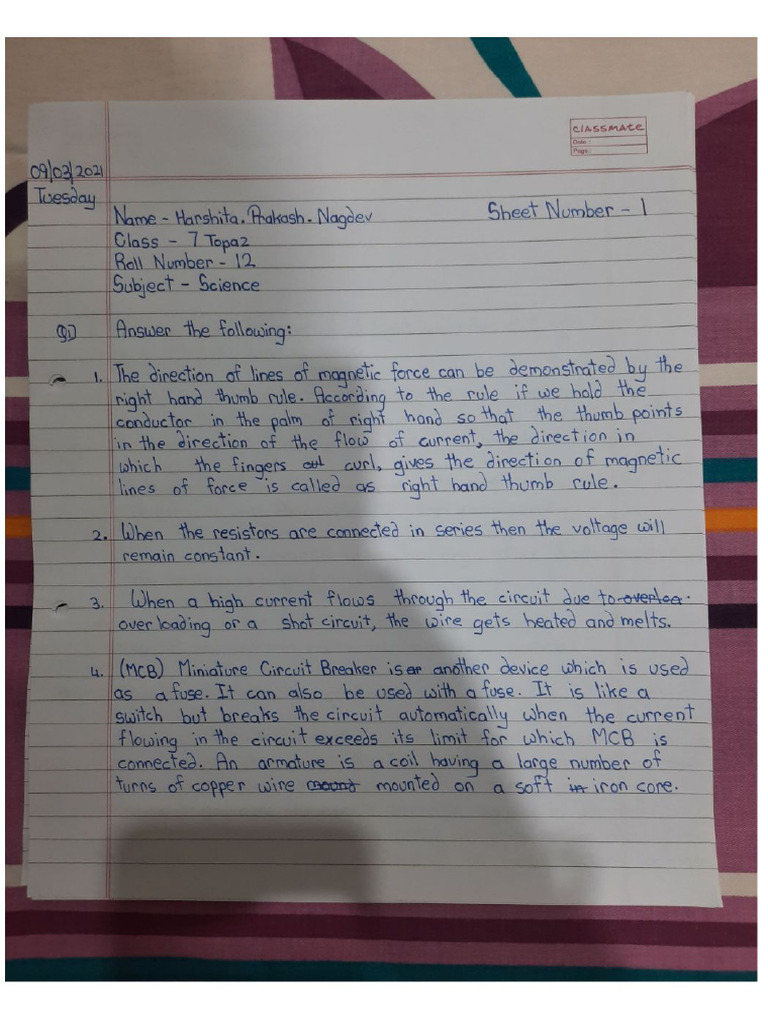 classmate
Date :
Page :
09/03/2021
Tuesday
Name - Harshita. Prakash. Nagdev Sheet Number - 1
Class - 7 Topaz
Roll Number - 12
Subject - Science
Q1) Answer the following:
1. The direction of lines of magnetic force can be demonstrated by the
right hand thumb rule. According to the rule if we hold the
conductor in the palm of right hand so that the thumb points
in the direction of the flow of current, the direction in
which the fingers curl, gives the direction of magnetic
lines of force is called as right hand thumb rule.
2. When the resistors are connected in series then the voltage will
remain constant.
3. When a high current flows through the circuit due to overloa
over loading or a shot circuit, the wire gets heated and melts.
4. (MCB) Miniature Circuit Breaker is another device which is used
as a fuse. It can also be used with a fuse. It is like a
switch but breaks the circuit automatically when the current
flowing in the circuit exceeds its limit for which MCB is
connected. An armature is a coil having a large number of
turns of copper wire mount mounted on a soft in iron core.